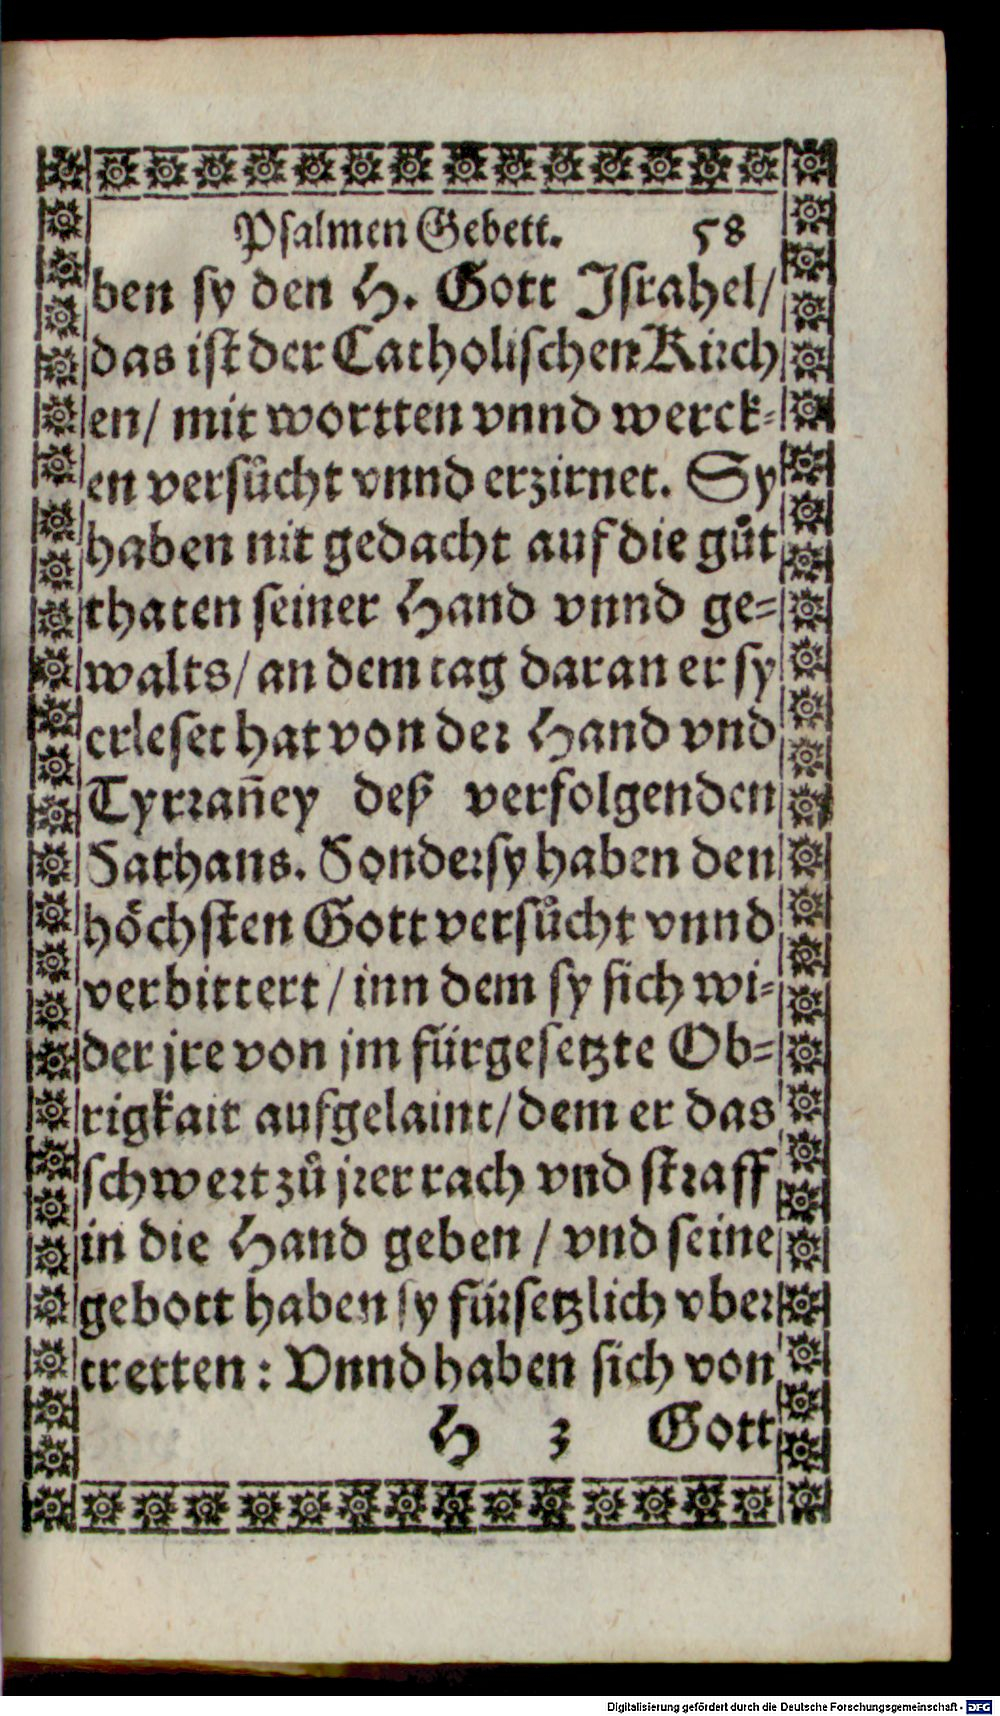 Psalmen Gebett. 58
ben sy den H. Gott Israhel/
das ist der Catholischen Kirch
en/ mit wortten vnnd werck⸗
en versůcht vnnd erzirnet. Sy
haben nit gedacht auf die gůt
thaten seiner Hand vnnd ge⸗
walts/ an dem tag daran er sy
erleset hat von der Hand vnd
Tyrrañey deß verfolgenden
Sathans. Sonder sy haben den
höchsten Gott versůcht vnnd
verbittert/ inn dem sy sich wi⸗
der jre von jm fürgesetzte Ob⸗
rigkait aufgelaint/ dem er das
schwert zů jrer rach vnd straff
in die Hand geben/ vnd seine
gebott haben sy fürsetzlich vber
tretten: Vnnd haben sich von
H 3 Gott
Digitalisierung gefördert durch die Deutsche Forschungsgemeinschaft - DFG